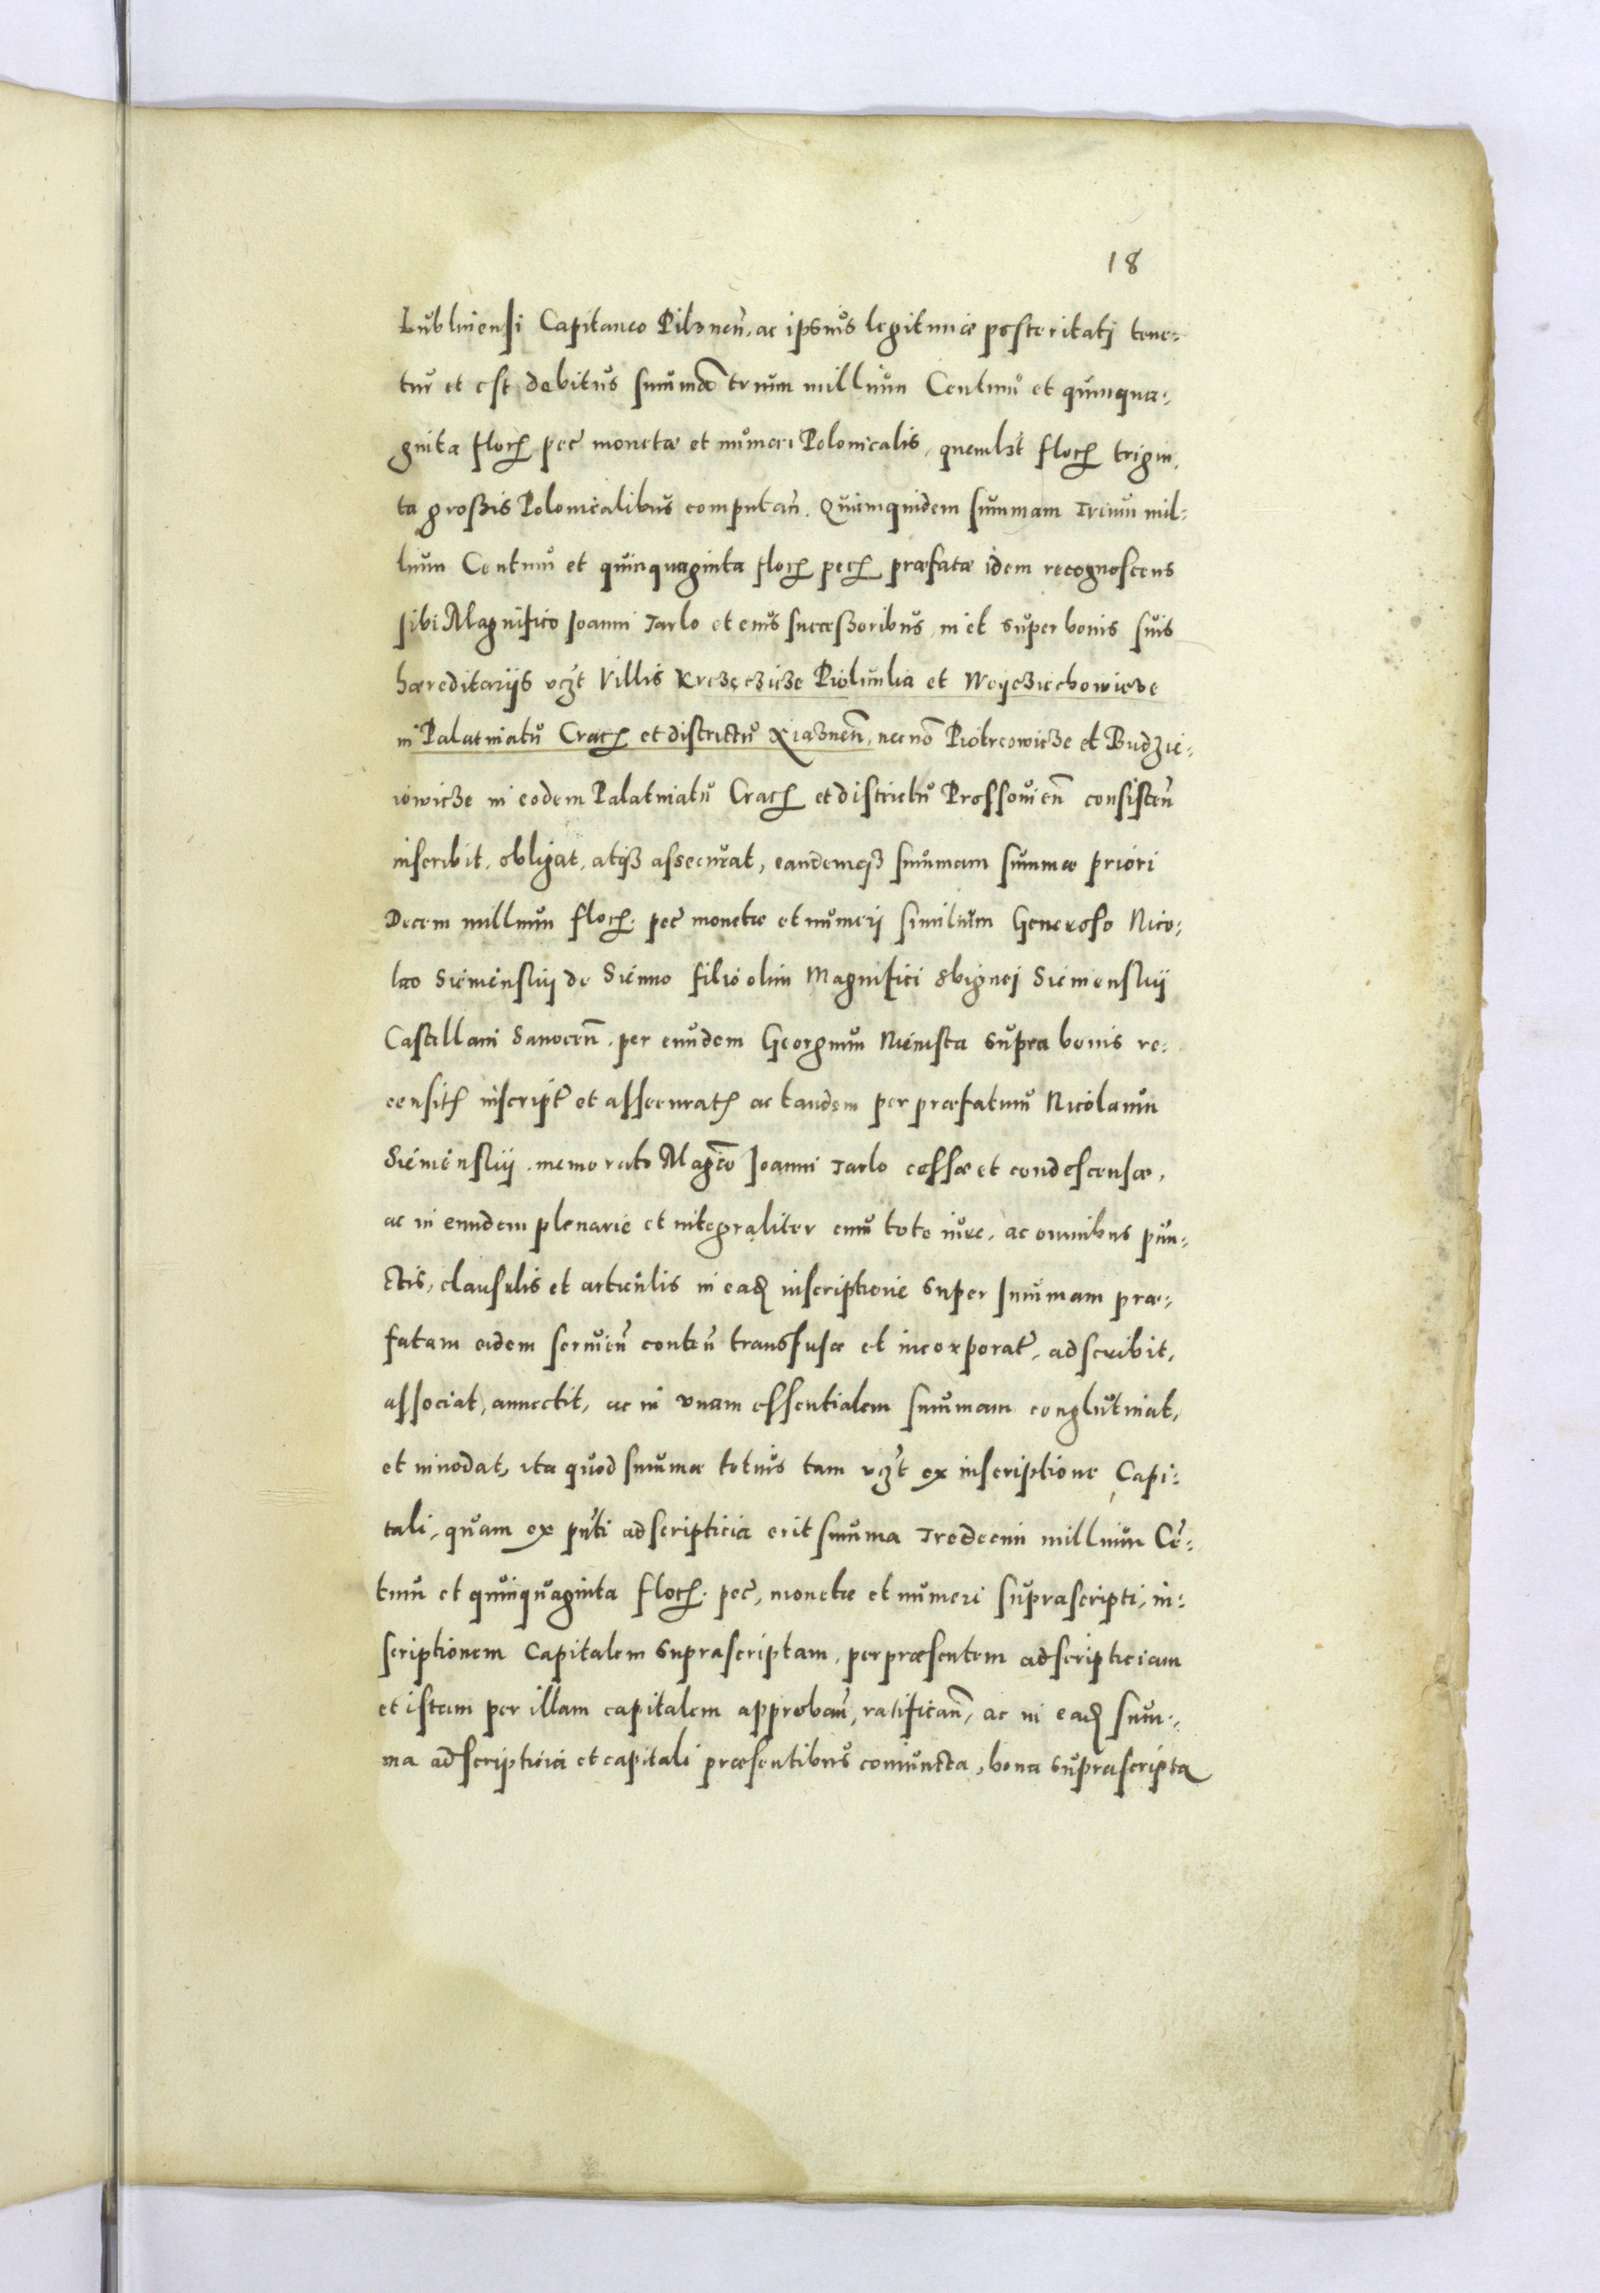 18
Lubliniensi Capitaneo Pilznen̄. ac ipsius legitimæ posteritati tene-
tur et est debitus summæ trium millium Centum et quinqua-
ginta floꝝ pec̄ monetæ et numeri Polonicalis, quemlꝫt floꝝ trigin,
ta grossis Polonicalibus computan̄. Quamquidem summam Trium mil-
lium Centum et quinquaginta floꝝ pecꝝ præfatæ idem recognoscens
sibi Magnifico Joanni Tarlo et eius successoribus, in et super bonis suis
hæreditariis vcꝫt Villis Krczęczicze Piolunka et Woyczichowicze
in Palatinatu Cracꝝ et districtu Xiaznen̄, nec nō Piotrcowicze et Budzie-
iowicze in eodem Palatinatu Cracꝝ et districtu Prossouien̄ consisten̄
inscribit, obligat, atqꝫ assecurat, eandemqꝫ summam summæ priori
Decem millium floꝝ. pec̄ monetæ et numeri similium Generoso Nico-
lao Sieniensky de Sienno filio olim Magnifici Sbignei Sieniensky
Castellani Sanocen̄. per eundem Georgium Niemsta supra bonis re-
censitꝭ inscript̄ et assecuratꝭ ac tandem per præfatum Nicolaum
Sieniensky. memorato Magc̄o Joanni Tarlo cessæ et condescensæ,
ac in eundem plenarie et integraliter cum toto iure, ac omnibus pun-
ctis, clausulis et articulis in eadꝫ inscriptione super summam præ-
fatam eidem seruien̄ conten̄ transfusæ et incorporat̄, adscribit,
associat, annectit, ac in vnam essentialem summam conglutinat,
et innodat, ita quod summa totius tam vcꝫt ex inscriptione Capi-
tali, quam ex pn̄ti adscripticia erit summa Tredecim millium Cē-
tum et quinquaginta floꝝ. pec̄, monetæ et numeri suprascripti, in-
scriptionem Capitalem suprascriptam, per præsentem adscripticiam
et istam per illam capitalem approban̄, ratifican̄, ac in eadꝫ sum-
ma adscripticia et capitali præsentibus coniuncta, bona suprascripta